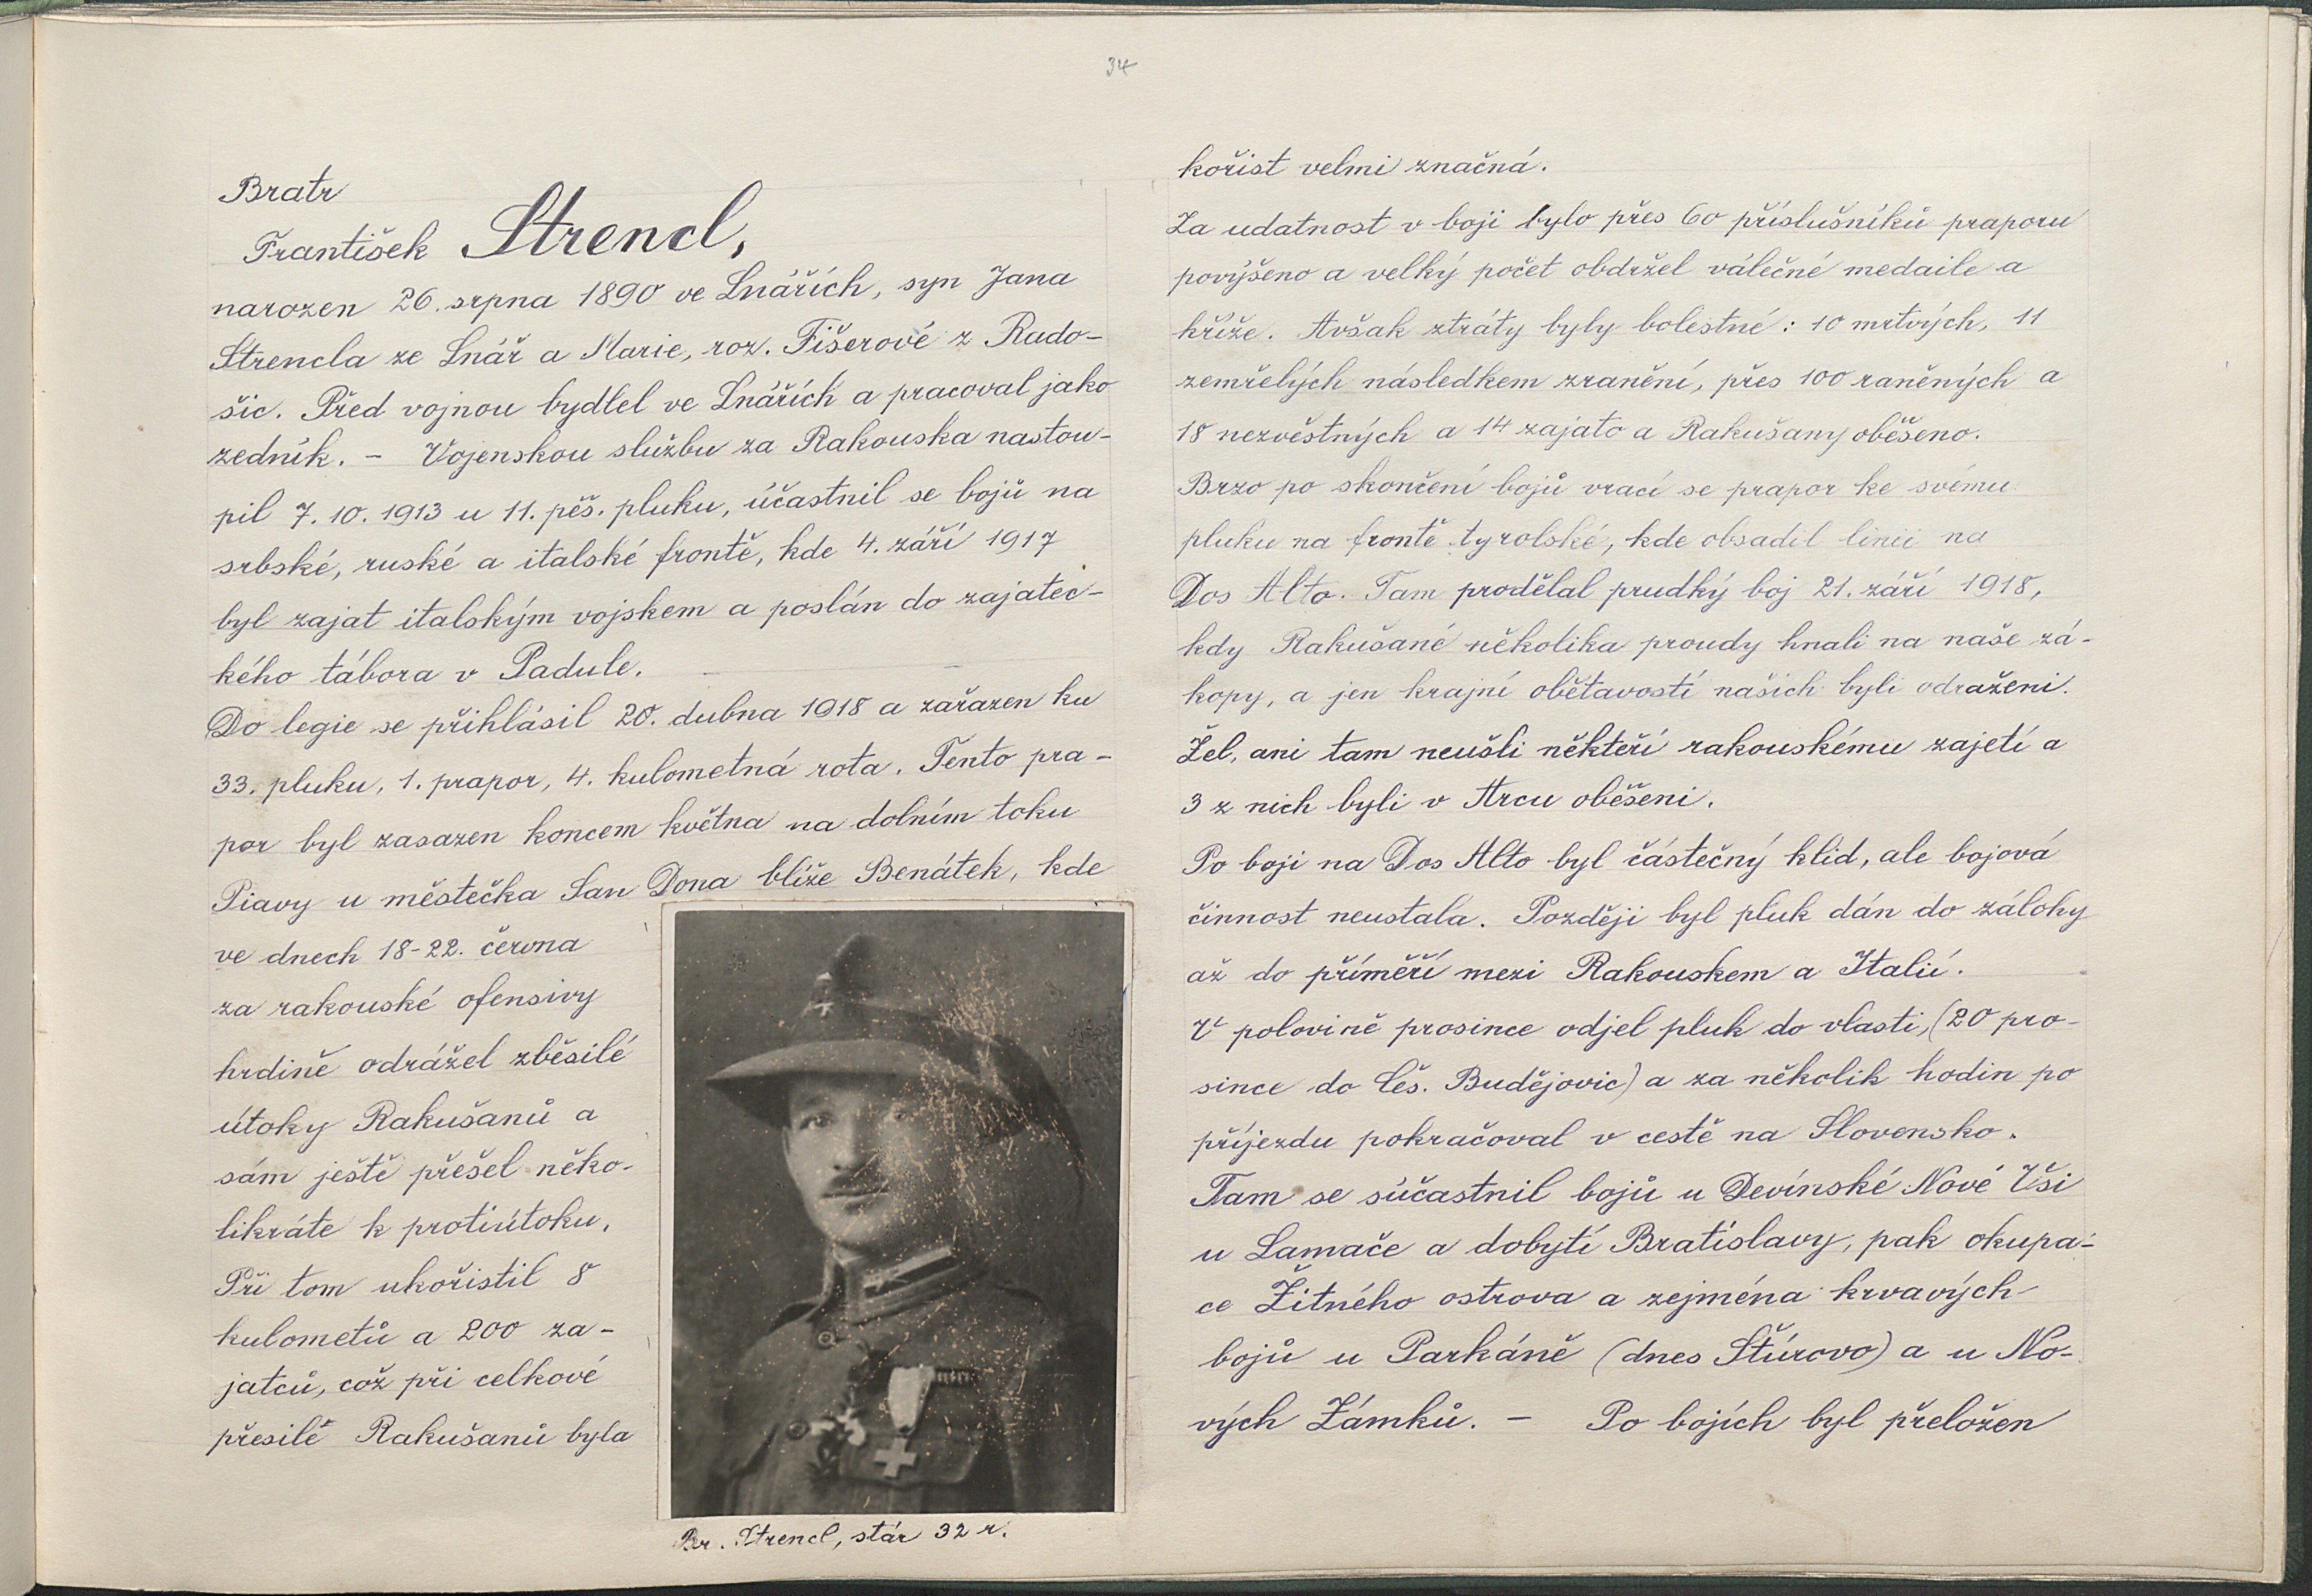 34
Bratr
František Strencl,
narozen 26. srpna 1890 ve Lnářích, syn Jana
Strencla ze Lnář a Marie, roz. Fišerové z Rado-
šic. Před vojnou bydlel ve Lnářích a pracoval jako
zedník. - Vojenskou službu za Rakouska nastou-
pil 7. 10. 1913 u 11. pěš. pluku, účastnil se bojů na
srbské, ruské a italské frontě, kde 4. září 1917
byl zajat italským vojskem a poslán do zajatec-
kého tábora v Padule. -
Do legie se přihlásil 20. dubna 1918 a zařazen ku
33. pluku, 1. prapor, 4. kulometná rota. Tento pra-
por byl zasazen koncem května na dolním toku
Piavy u městečka San Dona blíže Benátek, kde
ve dnech 18-22. června
za rakouské ofensivy
hrdině odrážel zběsilé
útoky Rakušanů a
sám ještě přešel něko-
likráte k protiútoku.
Při tom ukořistil 8
kulometů a 200 za-
jatců, což při celkové
přesile Rakušanů byla
Br. Strencl, stár 32 r.
kořist velmi značná.
Za udatnost v boji bylo přes 60 příslušníků praporu
povýšeno a velký počet obdržel válečné medaile a
kříže. Avšak ztráty byly bolestné: 10 mrtvých, 11
zemřelých následkem zranění, přes 100 raněných a
18 nezvěstných a 14 zajato a Rakušany oběšeno.
Brzo po skončení bojů vrací se prapor ke svému
pluku na frontě tyrolské, kde obsadil linii na
Dos Alto. Tam prodělal prudký boj 21. září 1918,
kdy Rakušané několika proudy hnali na naše zá-
kopy, a jen krajní obětavostí našich byli odraženi.
Žel, ani tam neušli někteří rakouskému zajetí a
3 z nich byli v Arcu oběšeni.
Po boji na Dos Alto byl částečný klid, ale bojová
činnost neustala. Později byl pluk dán do zálohy
až do příměří mezi Rakouskem a Italií.
V polovině prosince odjel pluk do vlasti, (20 pro-
since do Čes. Budějovic) a za několik hodin po
příjezdu pokračoval v cestě na Slovensko.
Tam se súčastnil bojů u Devínské Nové Vši
u Lamače a dobytí Bratislavy, pak okupa-
ce Žitného ostrova a zejména krvavých
bojů u Parkáně (dnes Štúrovo) a u No-
vých Zámků. - Po bojích byl přeložen